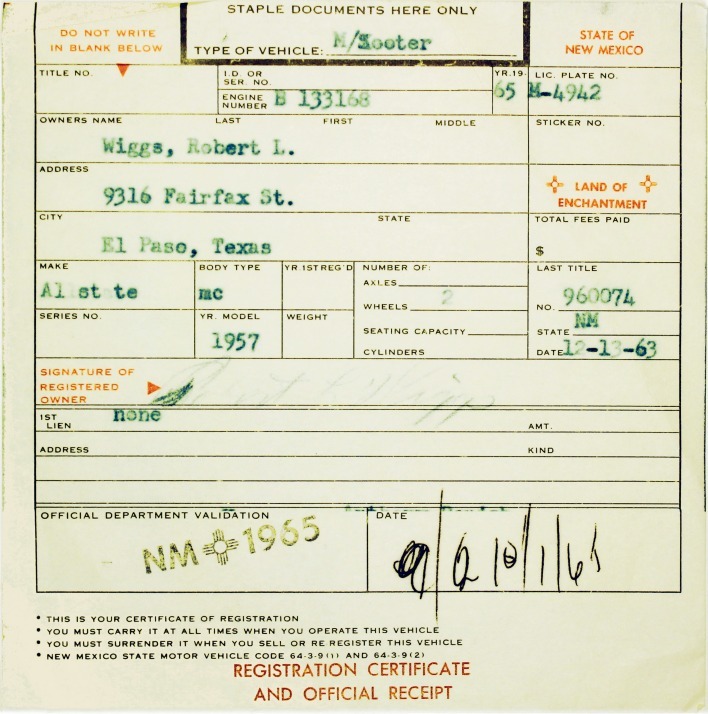 STAPLE DOCUMENTS HERE ONLY
DO NOT WRITE
IN BLANK BELOW
TYPE OF VEHICLE: M/Scooter
STATE OF
NEW MEXICO
TITLE NO.
I.D. OR
SER. NO.
ENGINE
NUMBER B 133168
YR.19-
65
LIC. PLATE NO.
M-4942
OWNERS NAME LAST FIRST MIDDLE
Wiggs, Robert L.
STICKER NO.
ADDRESS
9316 Fairfax St.
LAND OF
ENCHANTMENT
CITY STATE
El Paso, Texas
TOTAL FEES PAID
$
MAKE
Allstate
BODY TYPE
mc
YR.1ST REG'D
NUMBER OF:
AXLES
WHEELS 2
SEATING CAPACITY
CYLINDERS
LAST TITLE
NO. 960074
STATE NM
DATE 12-13-63
SERIES NO.
YR. MODEL
1957
WEIGHT
SIGNATURE OF
REGISTERED
OWNER
Robert L Wiggs
1ST
LIEN none
AMT.
ADDRESS
KIND
OFFICIAL DEPARTMENT VALIDATION
NM 1965
DATE
• THIS IS YOUR CERTIFICATE OF REGISTRATION
• YOU MUST CARRY IT AT ALL TIMES WHEN YOU OPERATE THIS VEHICLE
• YOU MUST SURRENDER IT WHEN YOU SELL OR RE REGISTER THIS VEHICLE
• NEW MEXICO STATE MOTOR VEHICLE CODE 64-3-9(1) AND 64-3-9(2)
REGISTRATION CERTIFICATE
AND OFFICIAL RECEIPT